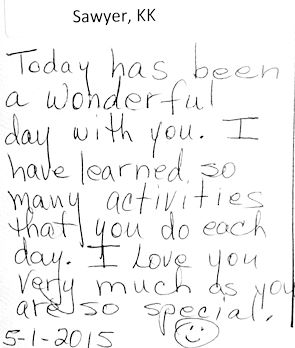 Sawyer, KK
Today has been
a wonderful
day with you. I
have learned so
many activities
that you do each
day. I Love you
very much as you
are so special.
5-1-2015